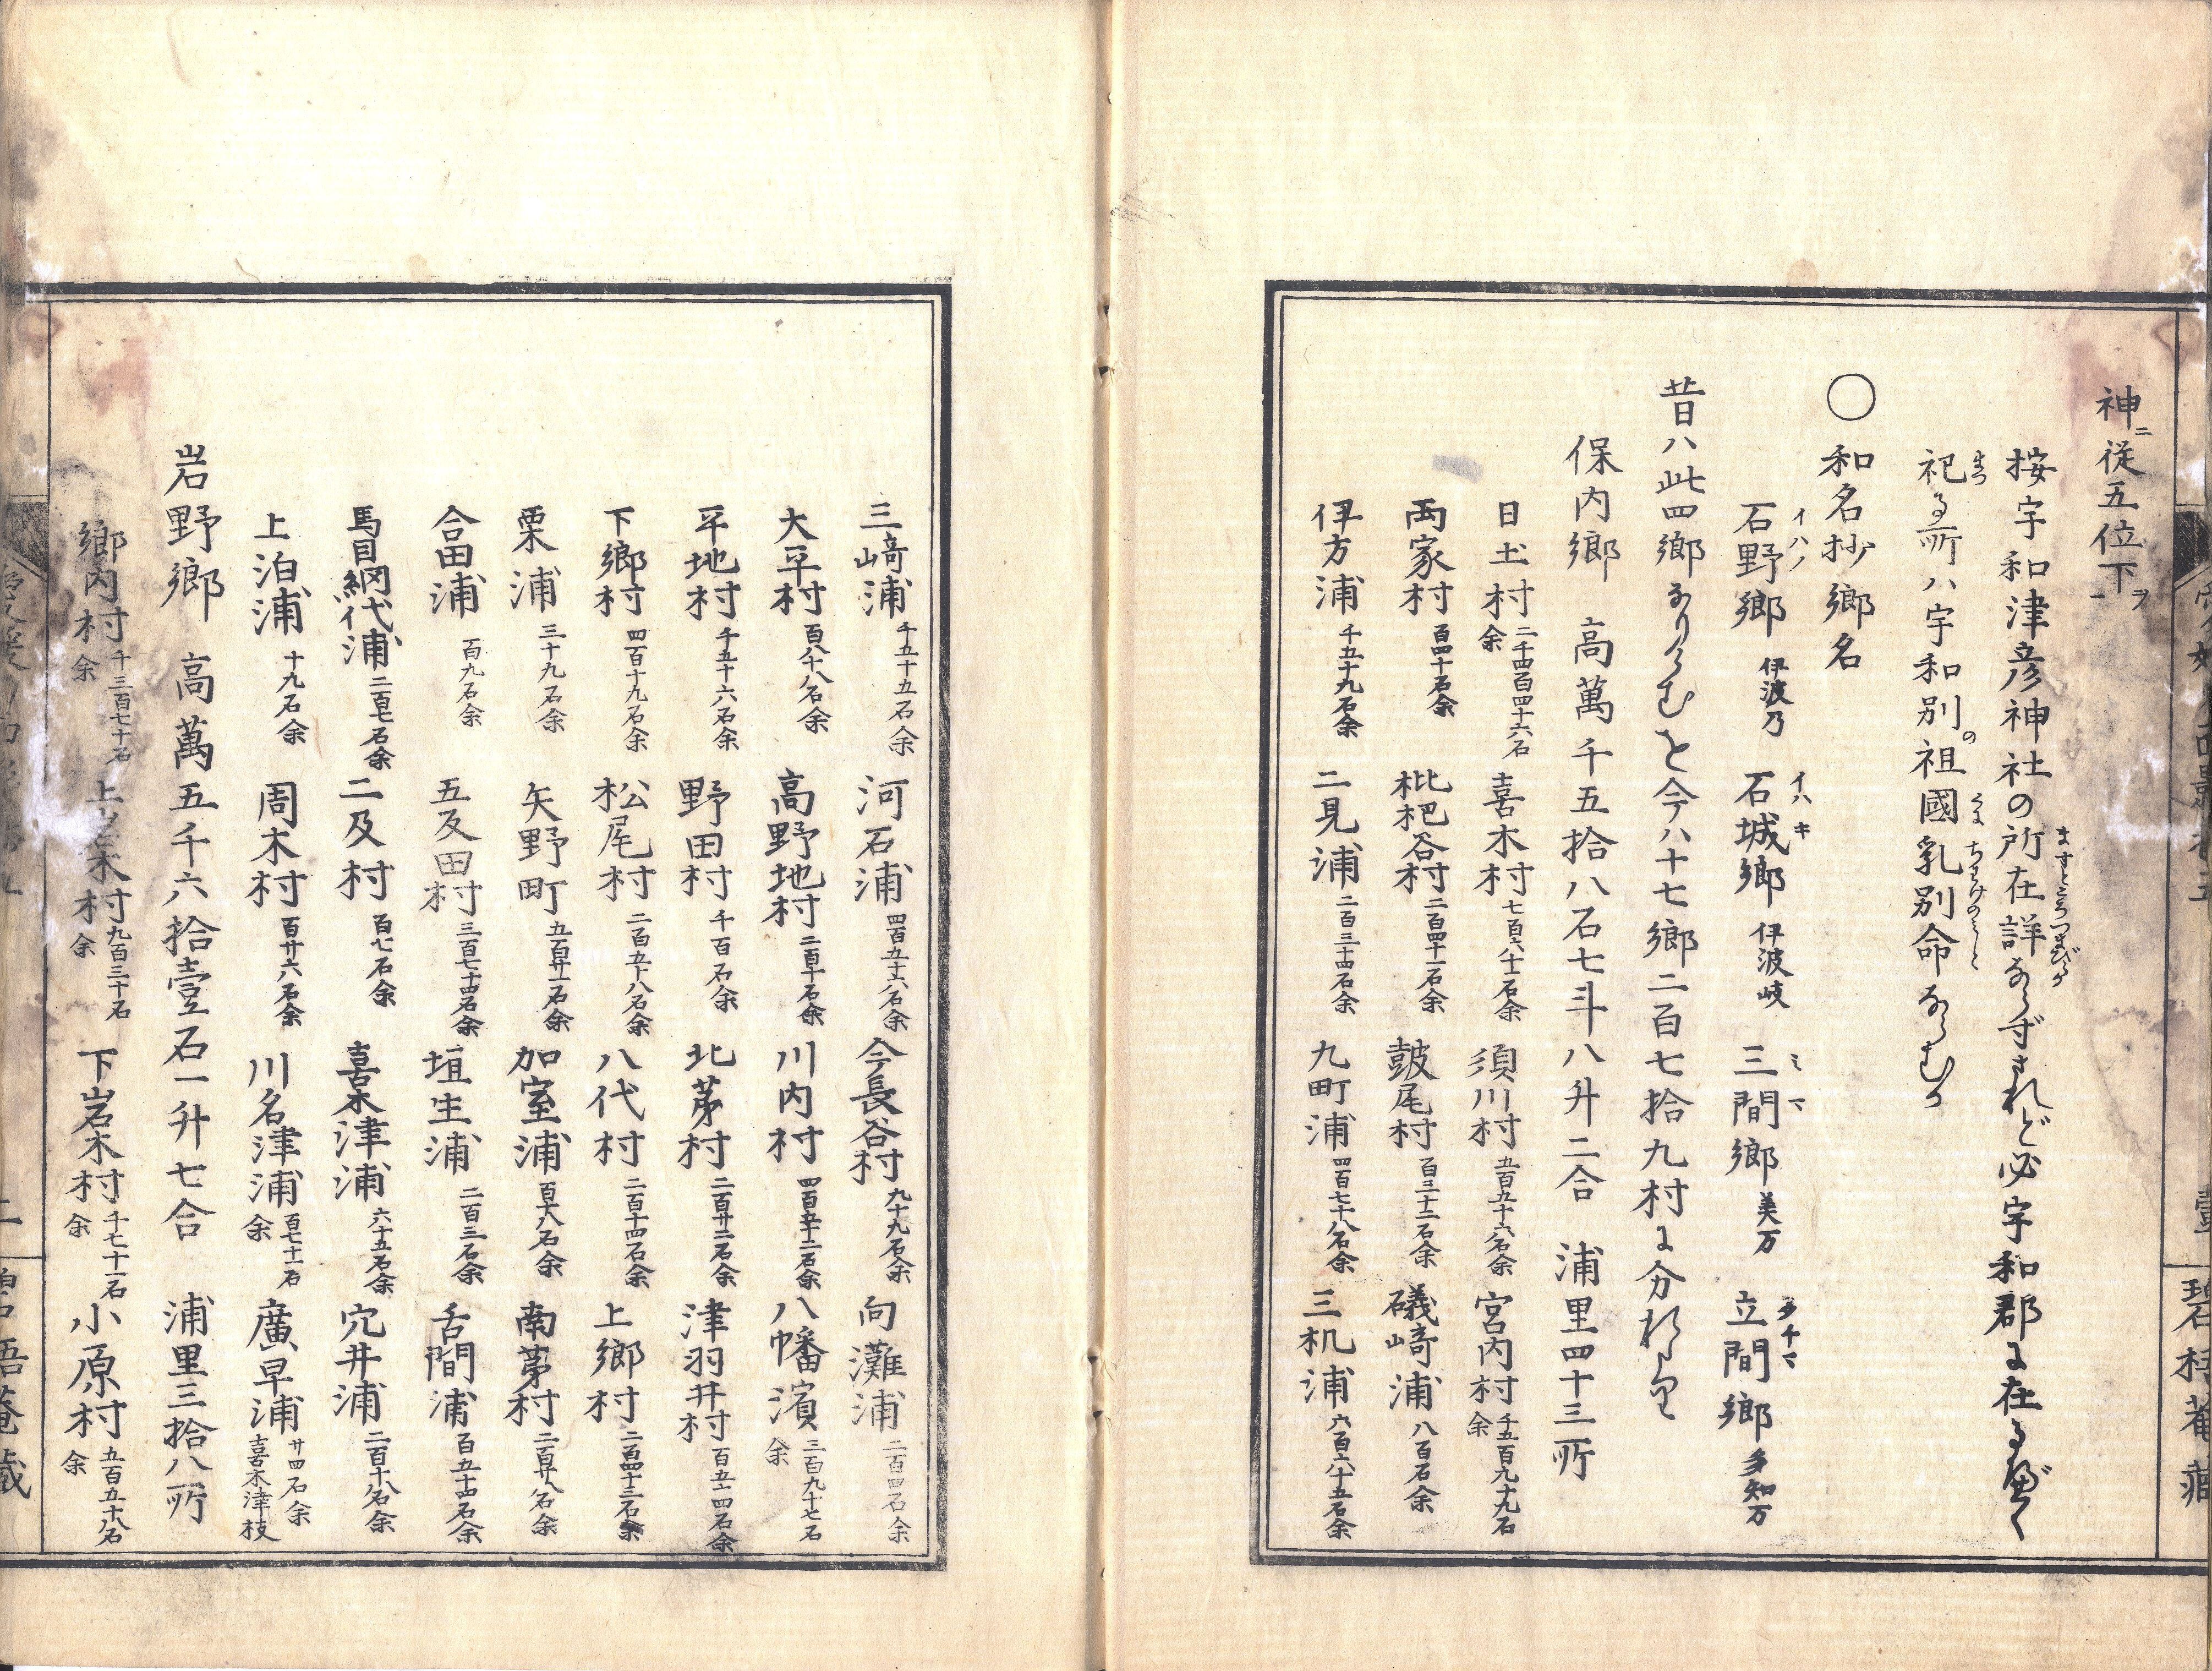 神ニ従五位下ヲ一
按宇和津彦神社の所在詳ならずされど必宇和郡に在るべく
祀る所ハ宇和別の祖國乳別命ならむか
〇和名抄郷名
石野郷 伊波乃 石城郷 伊波岐 三間郷 美万 立間郷 多知万
昔ハ此四郷なりらむを今ハ十七郷二百七拾九村に分れり
保内郷 高萬千五拾八石七斗八升二合 浦里四十三所
日土村 二千四百四十六石余 喜木村 七百六十一石余 須川村 五百五十六石余 宮内村 千五百九十九石余
両家村 百四十石余 枇杷谷村 二百四十一石余 皷尾村 百三十二石余 礒﨑浦 八百石余
伊方浦 千五十九石余 二見浦 二百三十四石余 九町浦 四百七十八石余 三机浦 六百六十五石余
三﨑浦 千五十五石余 河石浦 四百五十六石余 今長谷村 九十九石余 向灘浦 二百四石余
大平村 百八十八石余 高野地村 二百十石余 川内村 四百五十二石余 八幡濱 三百九十七石余
平地村 千五十六石余 野田村 千百石余 北茅村 二百廿二石余 津羽井村 百五十四石余
下郷村 四百十九石余 松尾村 二百五十八石余 八代村 二百十四石余 上郷村 二百四十三石余
栗浦 三十九石余 矢野町 五百廿一石余 加室浦 百六十八石余 南茅村 二百廿八石余
合田浦 百九石余 五反田村 三百七十四石余 垣生浦 二百三石余 舌間浦 百五十四石余
馬目網代浦 二百七石余 二及村 百七石余 喜木津浦 六十五石余 穴井浦 二百十八石余
上泊浦 十九石余 周木村 百廿六石余 川名津浦 百七十一石余 廣早浦 廿四石余喜木津枝
岩野郷 高萬五千六拾壹石一升七合 浦里三拾八所
郷内村 千三百七十石余 上岩木村 九百三十石余 下岩木村 千七十一石余 小原村 五百五十八石余